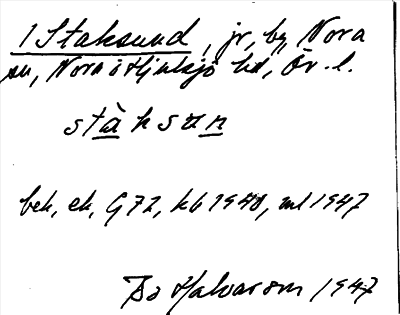 1 Staksund, jr, by, Nora
sn, Nora o Hjulsjö hd, Ör. l.
stàksun
bek, ek, G72, kb 1940, ml 1947
Bo Halvarson 1947